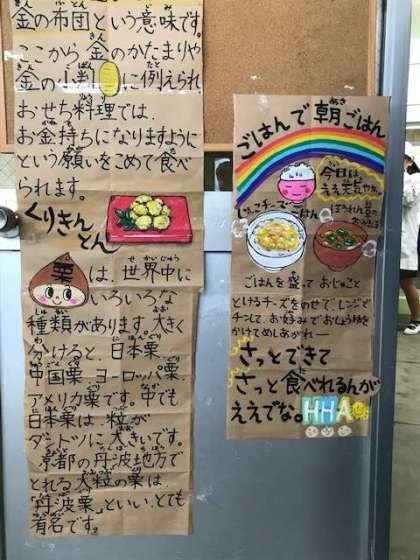 金の布団という意味です。
ここから金のかたまりや
金の小判に例えられ
おせち料理では、
お金持ちになりますように
という願いをこめて食べ
られます。
くりきんとん
栗は、世界中に
いろいろな
種類があります。大きく
分けると、日本栗、
中国栗・ヨーロッパ栗、
アメリカ栗です。中でも
日本栗は、粒が
ダントツに大きいです。
京都の丹波地方で
とれる大粒の栗は
「丹波栗」といい、とても
有名です。
ごはんで朝ごはん
今日は、
ええ天気やな。
じゃこチーズごはん
ほうれん草の
おみそ汁
ごはんを盛って おじゃこと
とけるチーズをのせて、レンジで
チンして、お好みでおしょうゆを
かけてめしあがれー
さっとできて
さっと食べれるんが
ええでな。HHA